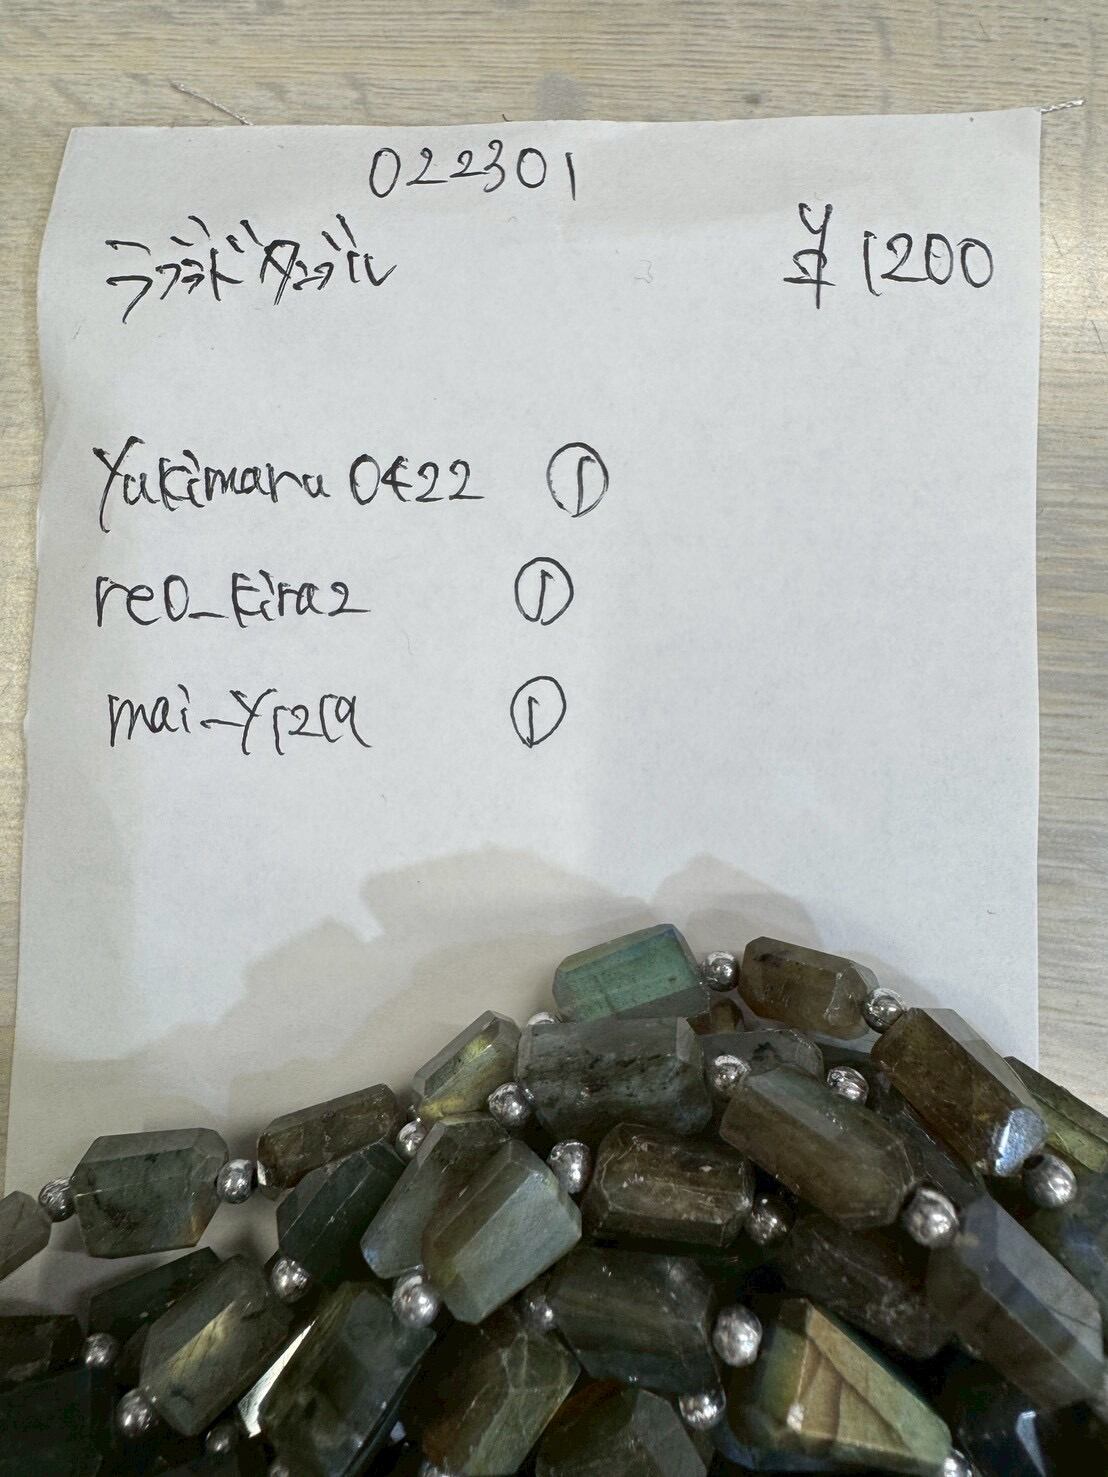 022301
ラブラドタンブル ¥1200
Yukimaru 0422 ①
reo_kira2 ①
mai_y1219 ①